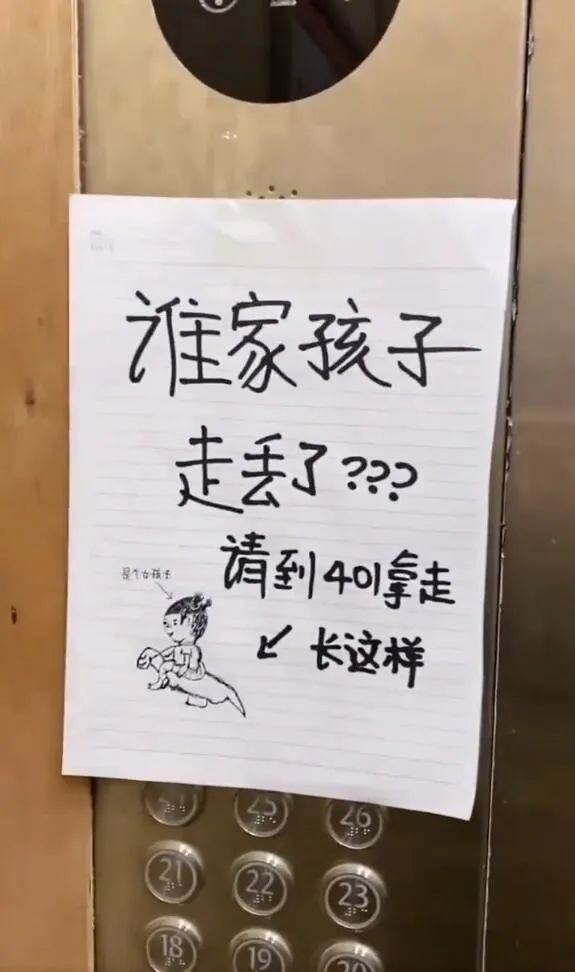 谁家孩子
走丢了???
请到401拿走
是个女孩子
↙ 长这样
25
26
21
22
23
18
19
20